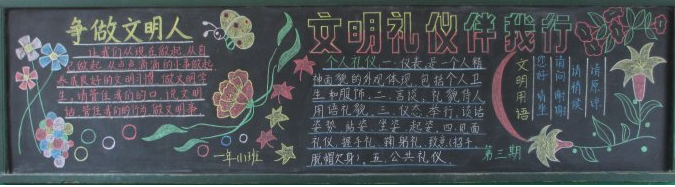 争做文明人
让我们从现在做起,从自
己做起,从点点滴滴的小事做起
养成良好的文明习惯,做文明学
生,请管住我们的口,说文明
话,管住我们的行为,做文明事
一年(1)班
文明礼仪伴我行
个人礼仪:一.仪表:是一个人精
神面貌的外观体现,包括个人卫
生和服饰.二.言谈:礼貌待人
用语礼貌.三.仪态:举行,谈话
姿势,站姿,坐姿,起姿.四.见面
礼仪:握手礼,鞠躬礼,致意(招手
脱帽欠身).五.公共礼仪.
第三期
文明用语
您好 请坐
请问 谢谢
请稍候
请原谅